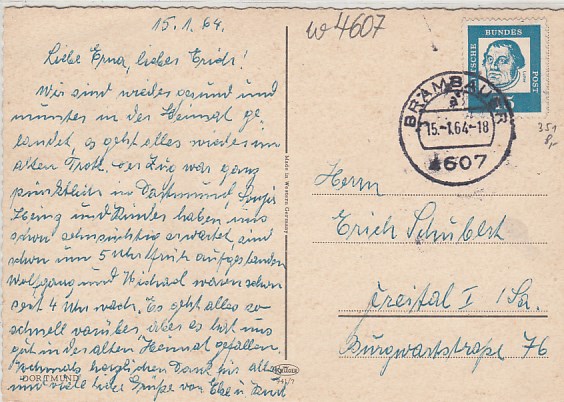 15.1.64.
Liebe Erna, lieber Erich!
Wir sind wieder gesund und
munter in der Heimat ge
landet, es geht alles wieder im
alten Trott. Der Zug war ganz
pünktlich in Dortmund,
Heinz und Kinder haben uns
schon sehnsüchtig erwartet, sind
schon um 5 Uhr früh aufgestanden
Wolfgang und Michael waren schon
seit 4 Uhr wach. Es geht alles so
schnell vorüber aber es hat uns
gut in der alten Heimat gefallen.
Nochmals herzlichen Dank für alles
und viele liebe Grüße von Else u. Kind
DORTMUND
w 4607
DEUTSCHE BUNDESPOST
BRAMBAUER
a
15.-1.64-18
4607
351
8,-
Made in Western Germany
Herrn
Erich Schubert
Freital I /Sa.
Burgwartstraße 76